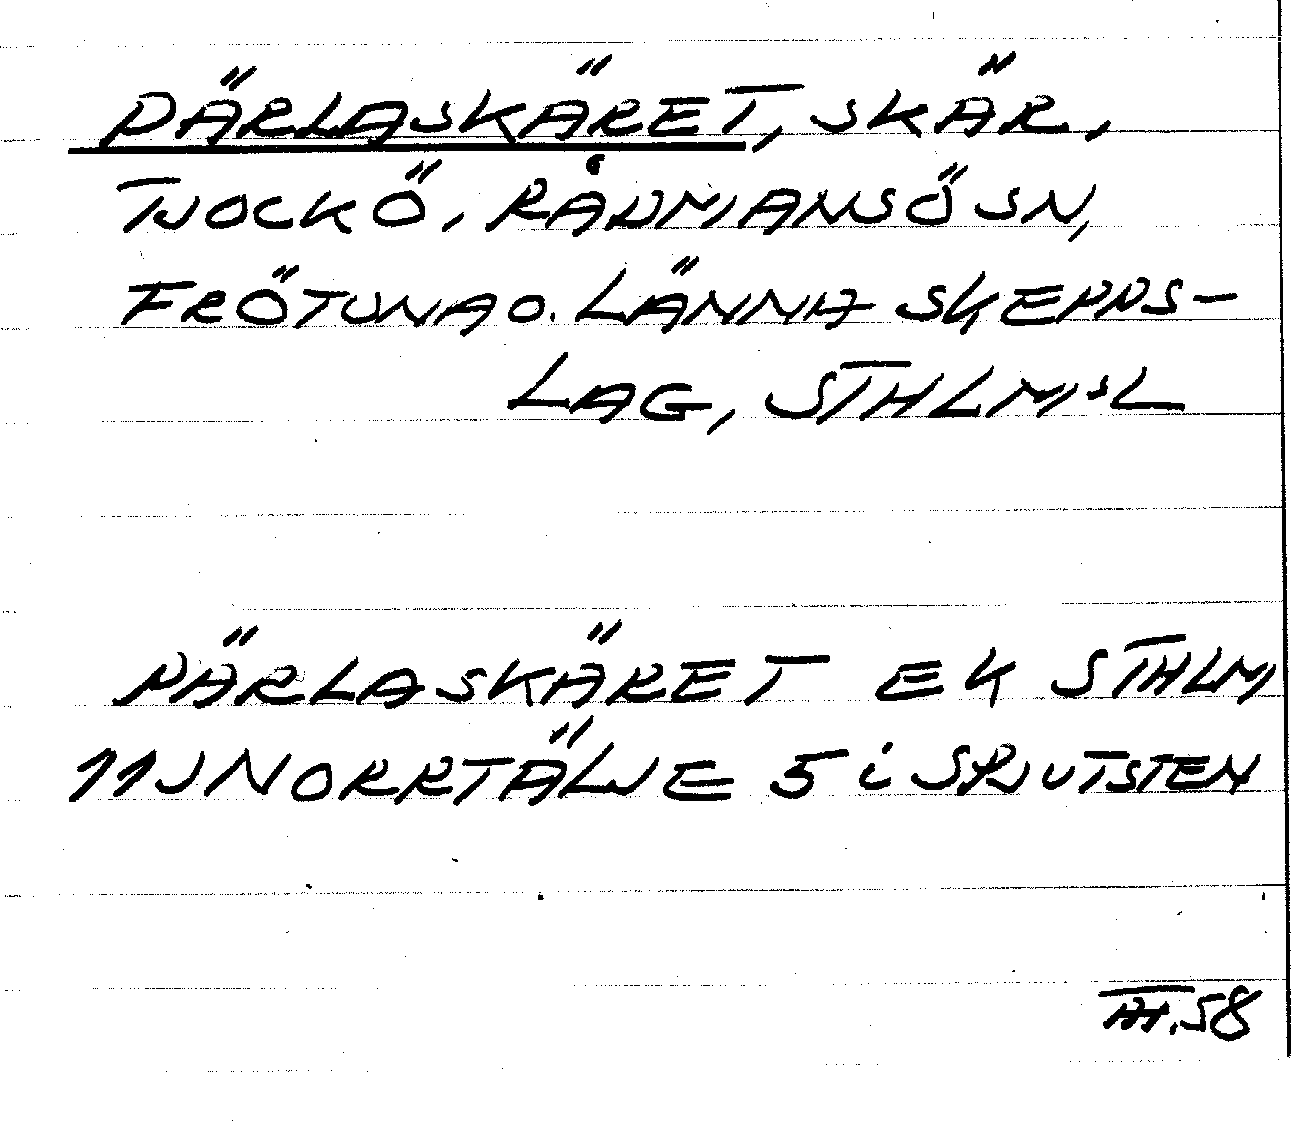 PÄRLASKÄRET, SKÄR,
TJOCKÖ, RÅDMANSÖ SN,
FRÖTUNA O. LÄNNA SKEPPS-
LAG, STHLMS L
PÄRLASKÄRET EK STHLM
11J NORRTÄLJE 5 i SPJUTSTEN
58